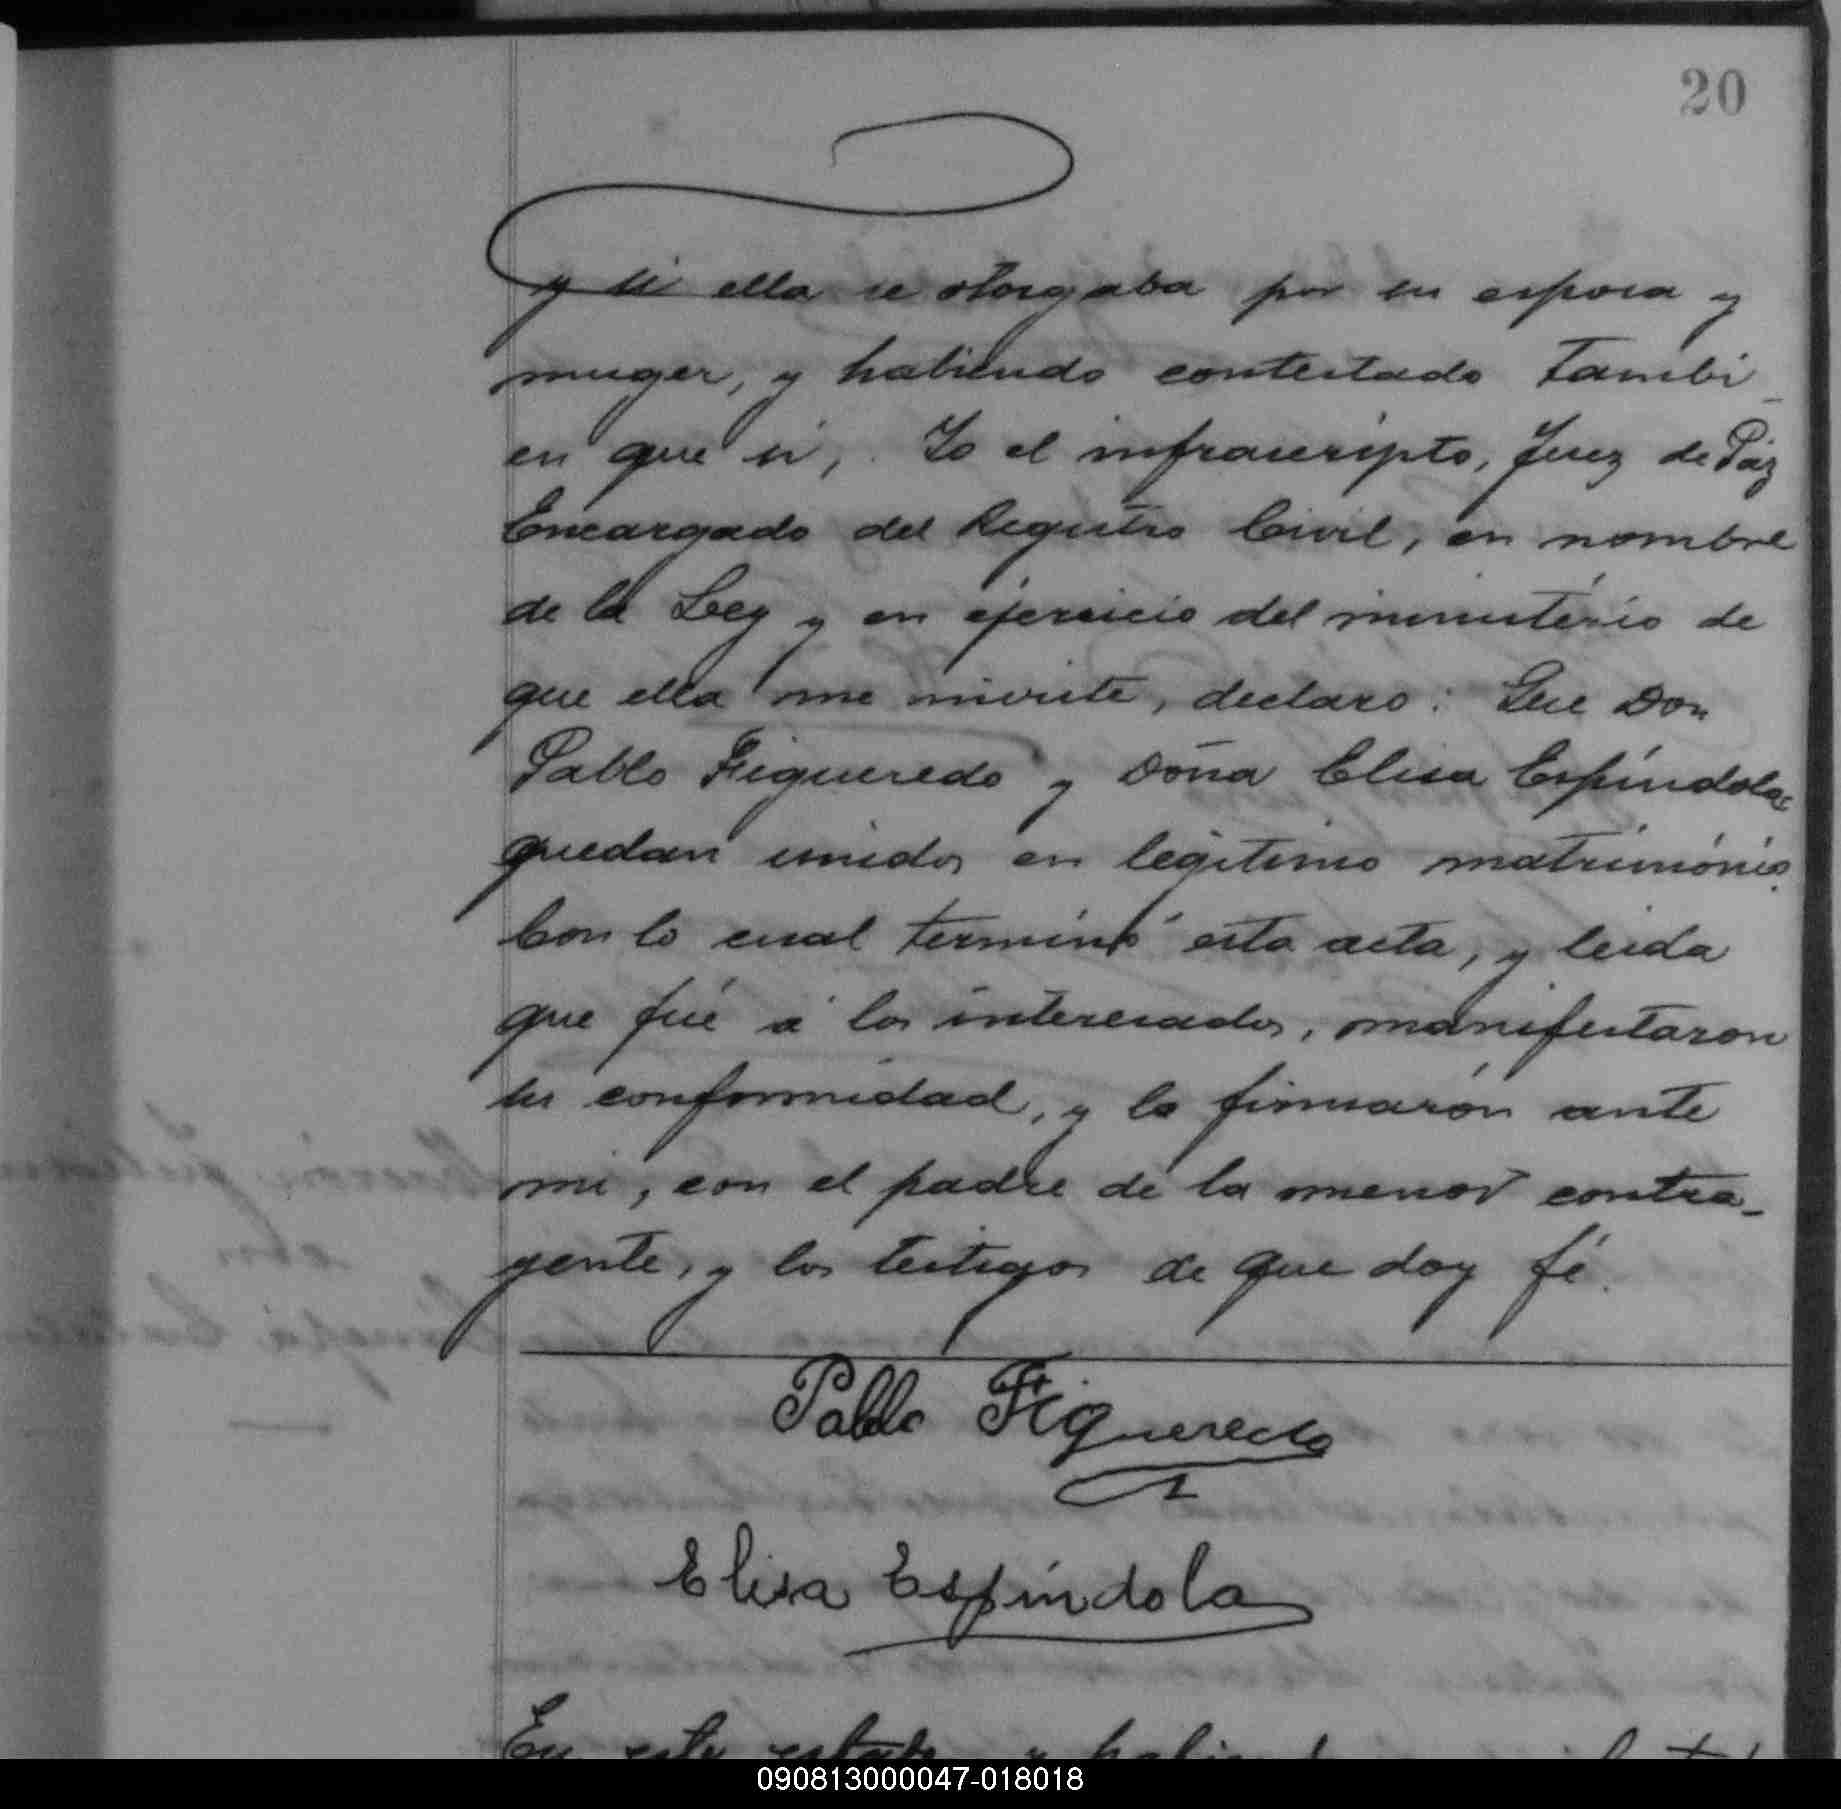 20
y si ella se otorgaba por su esposa y
muger, y habiendo contestado tambi-
en que si, Yo el infrascripto, Juez de Paz
Encargado del Registro Civil, en nombre
de la Ley y en ejercicio del ministério de
que ella me inviste, declaro: Que Don
Pablo Figueredo y Doña Elisa Espíndola
quedan unidos en legitimo matrimónio.
Con lo cual terminó esta acta, y leida
que fué á los interesados, manifestaron
su conformidad, y la firmarón ante
mi, con el padre de la menor contra-
yente, y los testigos de que doy fé.
Pablo Figueredo
Elisa Espíndola
En este estado y
090813000047-018018